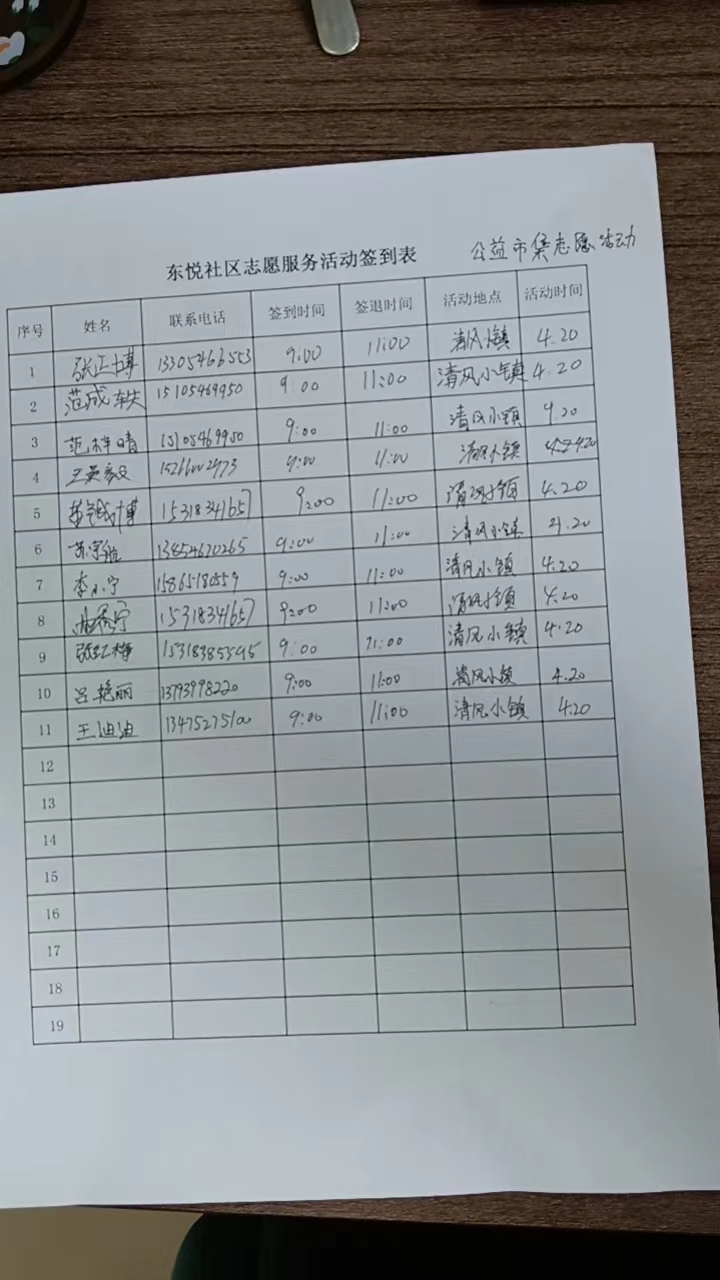 东悦社区志愿服务活动签到表 公益市集志愿活动
序号 姓名 联系电话 签到时间 签退时间 活动地点 活动时间
1 张正博 13305466553 9:00 11:00 清风小镇 4.20
2 范成轶 15105469950 9:00 11:00 清风小镇 4.20
3 范梓晴 15105469950 9:00 11:00 清风小镇 4.20
4 9:00 11:00 清风小镇 4.20
5 15318341657 9:00 11:00 清风小镇 4.20
6 13854670265 9:00 11:00 清风小镇 4.20
7 李小宁 15865180559 9:00 11:00 清风小镇 4.20
8 15318341657 9:00 11:00 清风小镇 4.20
9 张红梅 15318385595 9:00 11:00 清风小镇 4.20
10 吕艳丽 13793998220 9:00 11:00 清风小镇 4.20
11 王迪迪 13475275100 9:00 11:00 清风小镇 4.20
12
13
14
15
16
17
18
19